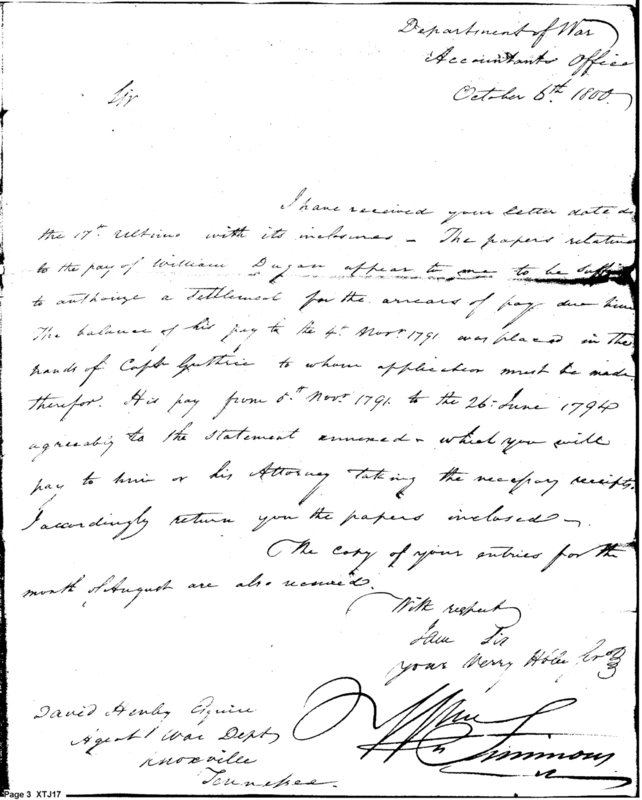 Department of War
Accountants Office
October 6th 1800.
Sir
I have received your letter date d
the 17th ultimo with its inclosures – The papers relative
to the pay of William Dugan appear to me to be
to authorize a settlement for the arrears of pay due him
The balance of his pay to the 4th Novr 1791 was placed in the
hands of Capt Guthrie to whom application must be made
therefor. His pay from 5th Novr 1791 to the 26th June 1794
agreeably to the statement annexed – which you will
pay to him or his Attorney taking the necessary receipts.
I accordingly return you the papers inclosed –
The copy of your entries for the
month of August are also received.
With respect
I am Sir
your Very Hble
David Henley Esquire
Agent War Dept
Knoxville
Tennessee.
Wm Simmons
Page 3 XTJ17